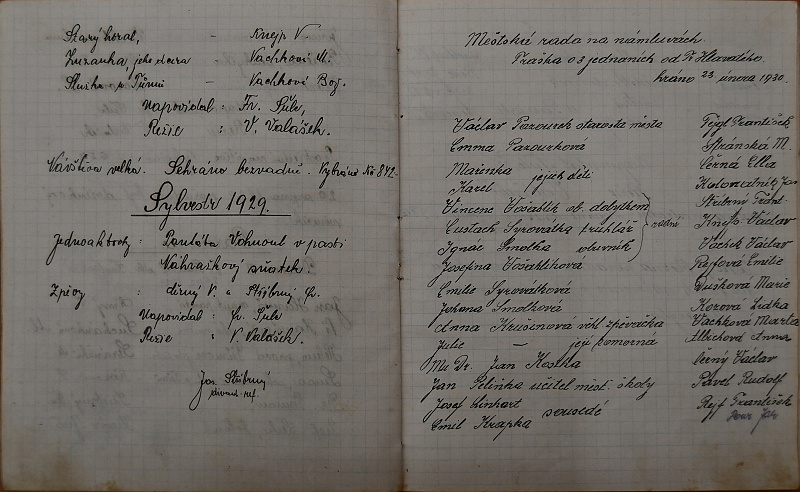 Starý horal, - Knejp V.
Zuzanka, jeho dcera - Vachkovi M.
Služka p. - Vachkovi Bož.
Napovídal : Fr. Šůla,
Režie : V. Valášek.
Návštěva velká. Sehráno bezvadně. Vybráno Kč 842.-
Sylvestr 1929.
Jednoaktovky : Pantáta Vohnout v pasti
Náhražkový sňatek.
Zpěvy : V. a Stříbrný Fr.
Napovídal : Fr. Šůla
Režie : V. Valášek.
Jos. Stříbrný
Městské rada na námluvách.
Fraška o 3 jednáních od Fr. Hlavatého.
hráno 23 února 1930.
Václav Pazourek starosta města Fejgl František
Emma Pazourková Stránská M.
Mařenka Černá Ella
Karel jejich děti
Vincenc Vošahlík ob. dobytkem Stříbrný Frant.
Eustach Syrovátka truhlář radní Knejp Václav
Ignác Smolka obuvník Vachek Václav
Josefina Vošahlíková Rejfová Emilie
Emilie Syrovátková Dušková Marie
Johana Smolková Kozová Lidka
Anna Krušinová věhl. zpěvačka Vachková Marta
Julie - její komorná Albrechtová Anna
Mu Dr. Jan Kostka Černý Václav
Jan Pelinka učitel měst. školy Pavel Rudolf
Josef Linhart Rejf František
Emil Krapka sousedé